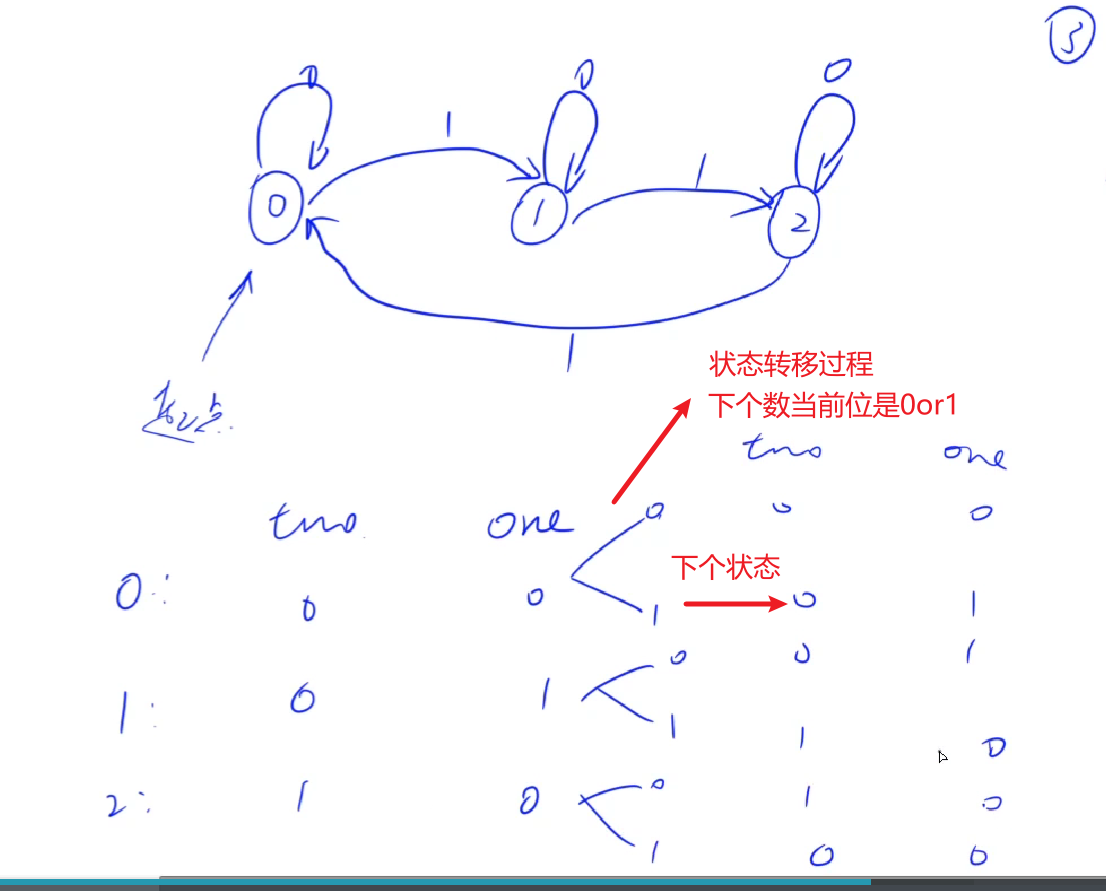 3
0 0 0
1 1
0 1 2
1
起点
状态转移过程
下个数当前位是0or1
two one
two one 0 0 0
下个状态
0: 0 0 1 0 1
0 0 1
1: 0 1 1 1 0
2: 1 0 0 1 0
1 0 0